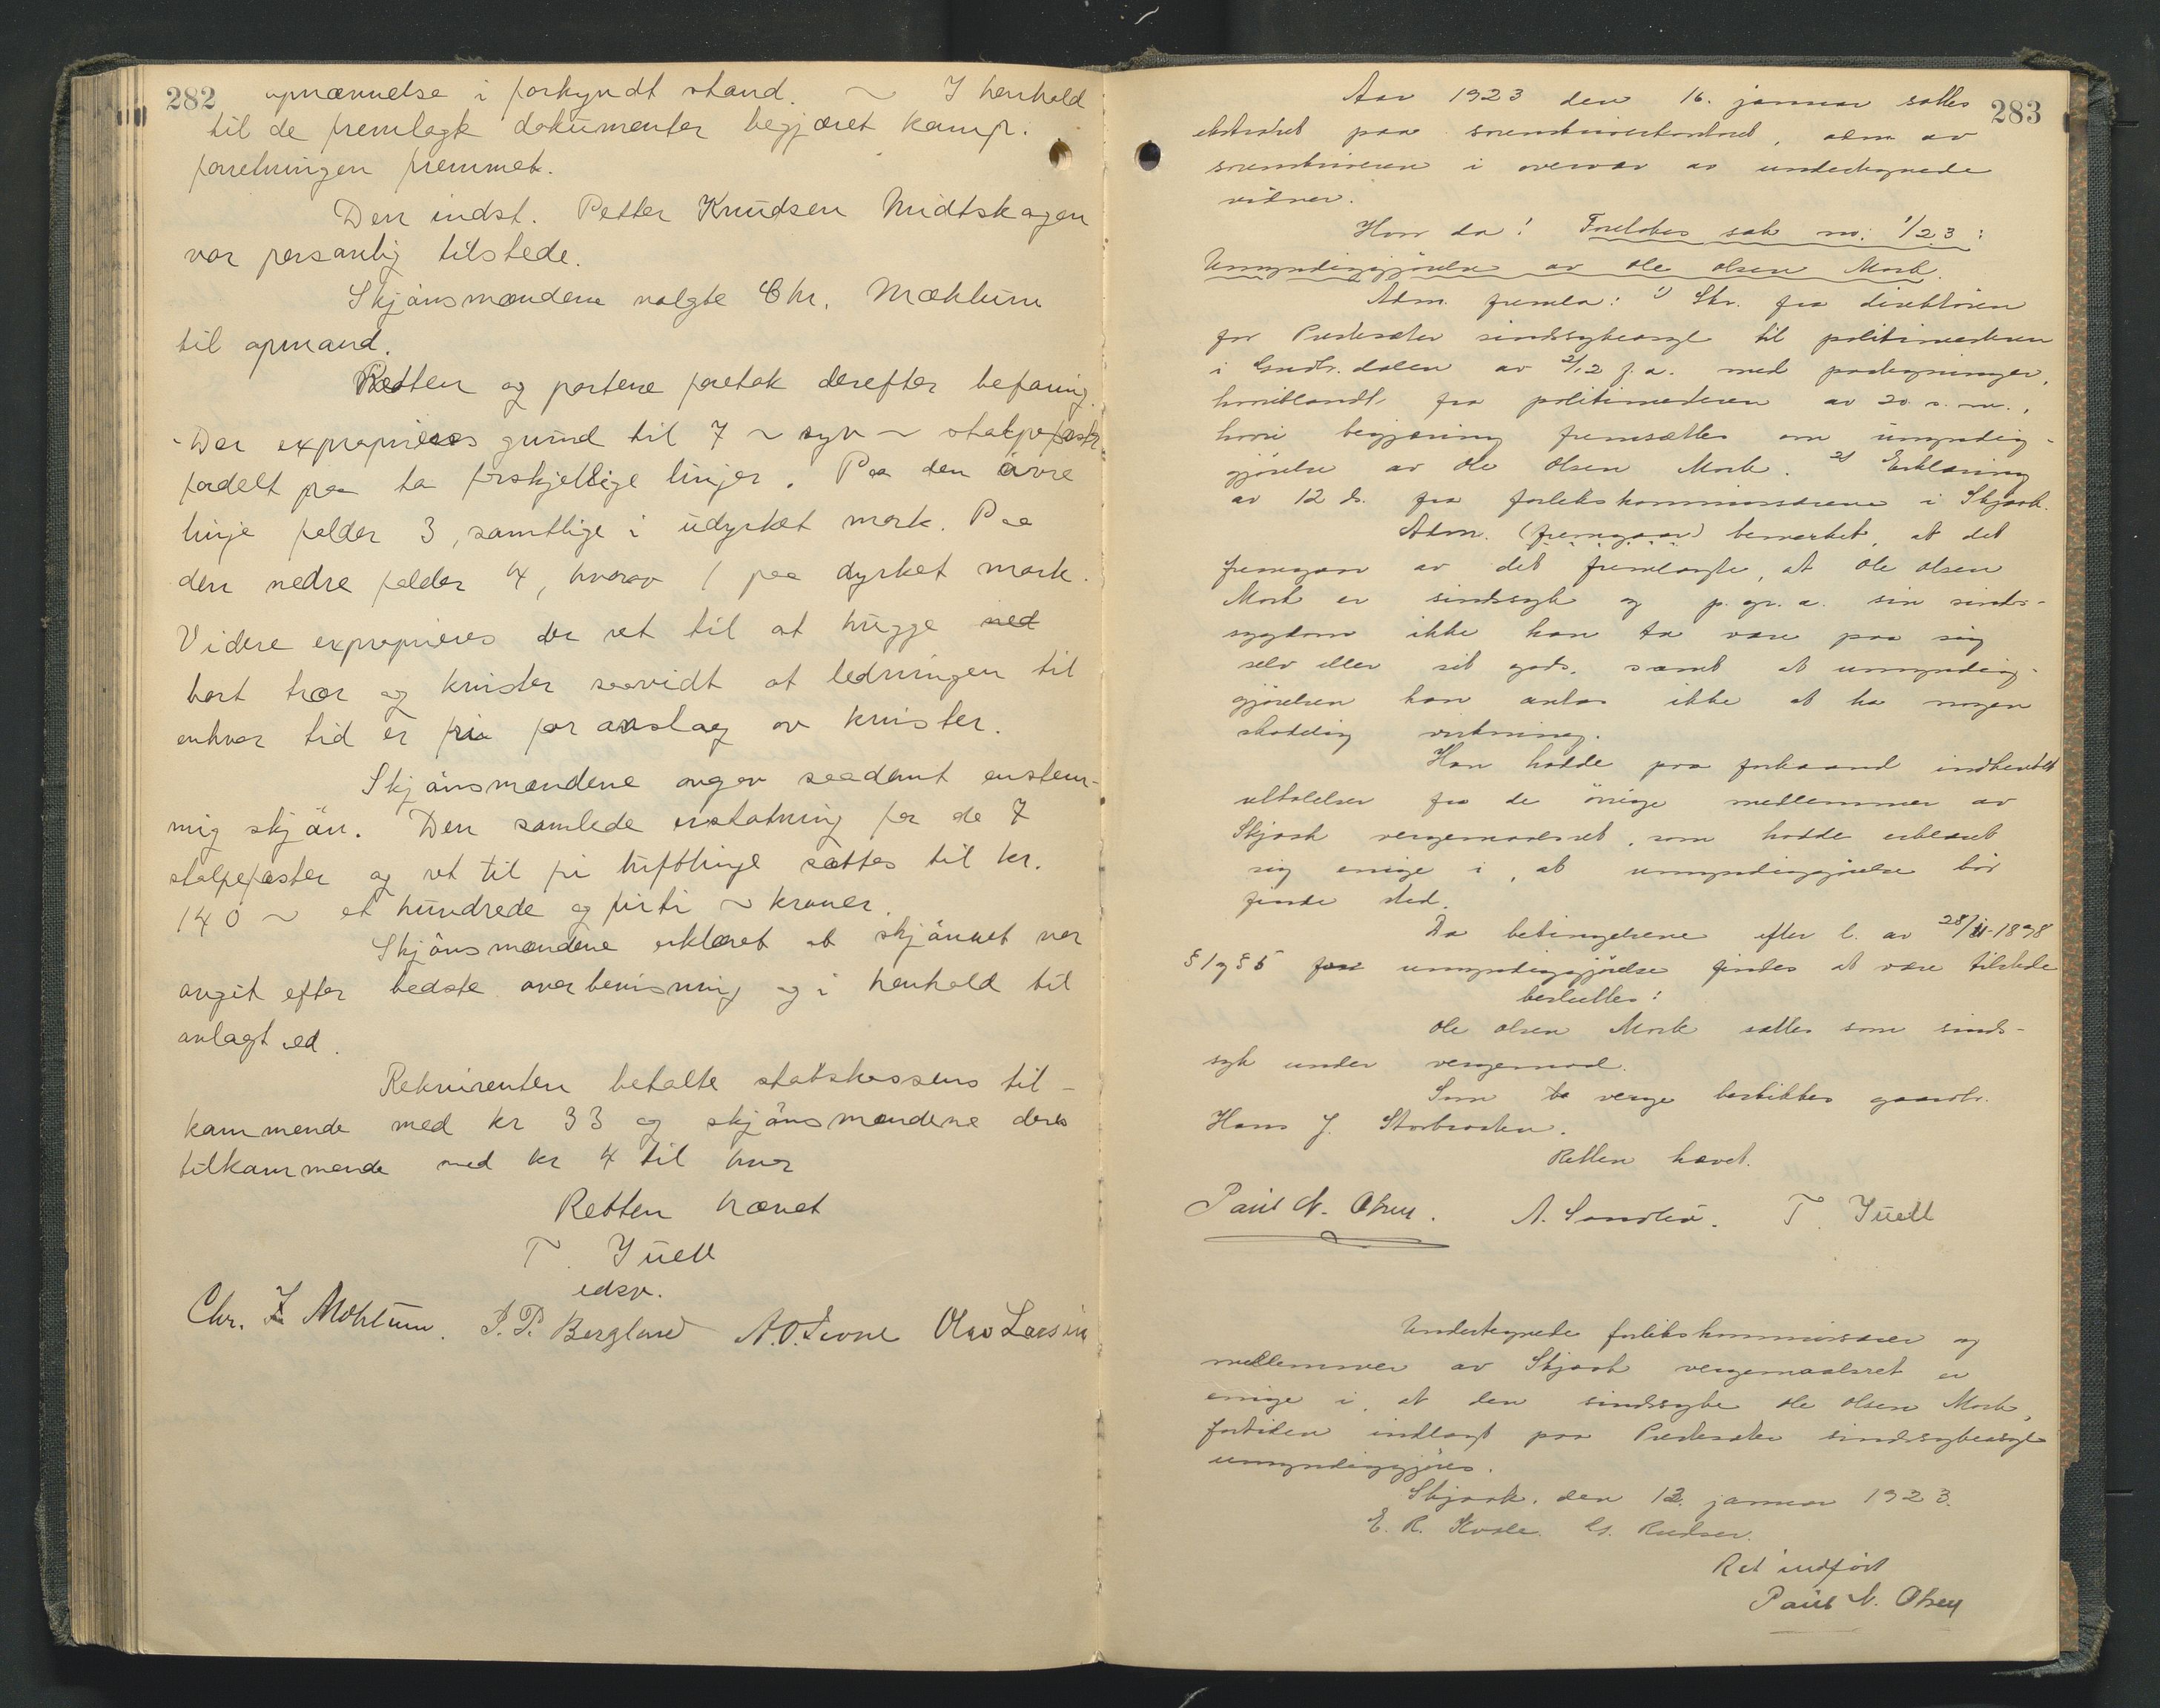 282
opnævnelse i forkyndt stand. ~ I henhold
til de fremlagte dokumenter begjæret kamr.
forretningen fremmet.
Den indst. Petter Knudsen Midtskogen
var personlig tilstede.
Skjönsmændene valgte Chr. Mæhlum
til opmand.
Retten og partene foretok derefter befaring.
Der exproprieres grund til 7 ~ syv ~ stolpefæster
fordelt paa to forskjellige linjer. Paa den övre
linje falder 3, samtlige i udyrket mark. Paa
den nedre falder 4, hvorav 1 paa dyrket mark.
Videre exproprieres der ret til at hugge ned
bort trær og kvister saavidt at ledningen til
enhver tid er fri for anslag av kvister.
Skjönsmændene avgav saadant enstem-
mig skjön. Den samlede erstatning for de 7
stolpefæster og ret til fri luftlinje sættes til kr.
140 ~ et hundrede og firti ~ kroner.
Skjönsmændene erklæret at skjönnet var
avgit efter bedste overbevisning og i henhold til
avlagt ed.
Rekvirenten betalte statskassens til-
kommende med kr 33 og skjönsmændene deres
tilkommende med kr 4 til hver
Retten hævet
T. Juell
edsv.
Chr. Mæhlum. P. P. Berglund A. O. Olav Larsen
283
Aar 1923 den 16. januar sattes
ekstraret paa sorenskriverkontoret, adm. av
sorenskriveren i overvær av undertegnede
vidner.
Hvor da! Foreløbes sak nr. 1/23:
Umyndiggjörelse av Ole Olsen Mork.
Adm. fremla: 1) Skr. fra direktören
for Presteseter sindssykeasyl til politimesteren
i Gudbr.dalen av 21/12 f. a. med paategninger,
hvoriblandt fra politimesteren av 20 s. m.,
hvori begjæring fremsættes om umyndig-
gjörelse av Ole Olsen Mork. 2) Erklæring
av 12 ds. fra forlikskommissærene i Skjaak.
Adm. (fremgaar) bemerket, at det
fremgaar av det fremlagte, at Ole Olsen
Mork er sindssyk og p. gr. a. sin sinds-
sygdom ikke kan ta vare paa sig
selv eller sit gods, samt at umyndig-
gjörelsen kan antas ikke at ha nogen
skadelig virkning.
Han hadde paa forhaand indhentet
uttalelser fra de övrige medlemmer av
Skjaak vergemaalsret, som hadde erklæret
sig enige i, at umyndiggjörelse bör
finde sted.
Da betingelsene efter l. av 28/11-1898
§ 1 og § 5 for umyndiggjörelse findes at være tilstede
besluttes:
Ole Olsen Mork sættes som sinds-
syk under vergemaal.
Som verge beskikkes gaardbr.
Hans J. Storbraaten.
Retten hævet.
Paul N. Olsen. A. T. Juell
Undertegnede forlikskommissærer og
medlemmer av Skjaak vergemaalsret er
enige i, at den sindssyke Ole Olsen Mork,
fortiden indlagt paa Presteseter sindssykeasyl
umyndiggjöres.
Skjaak, den 12. januar 1923.
E. R. Kvale.
Ret indfört
Paul N. Olsen